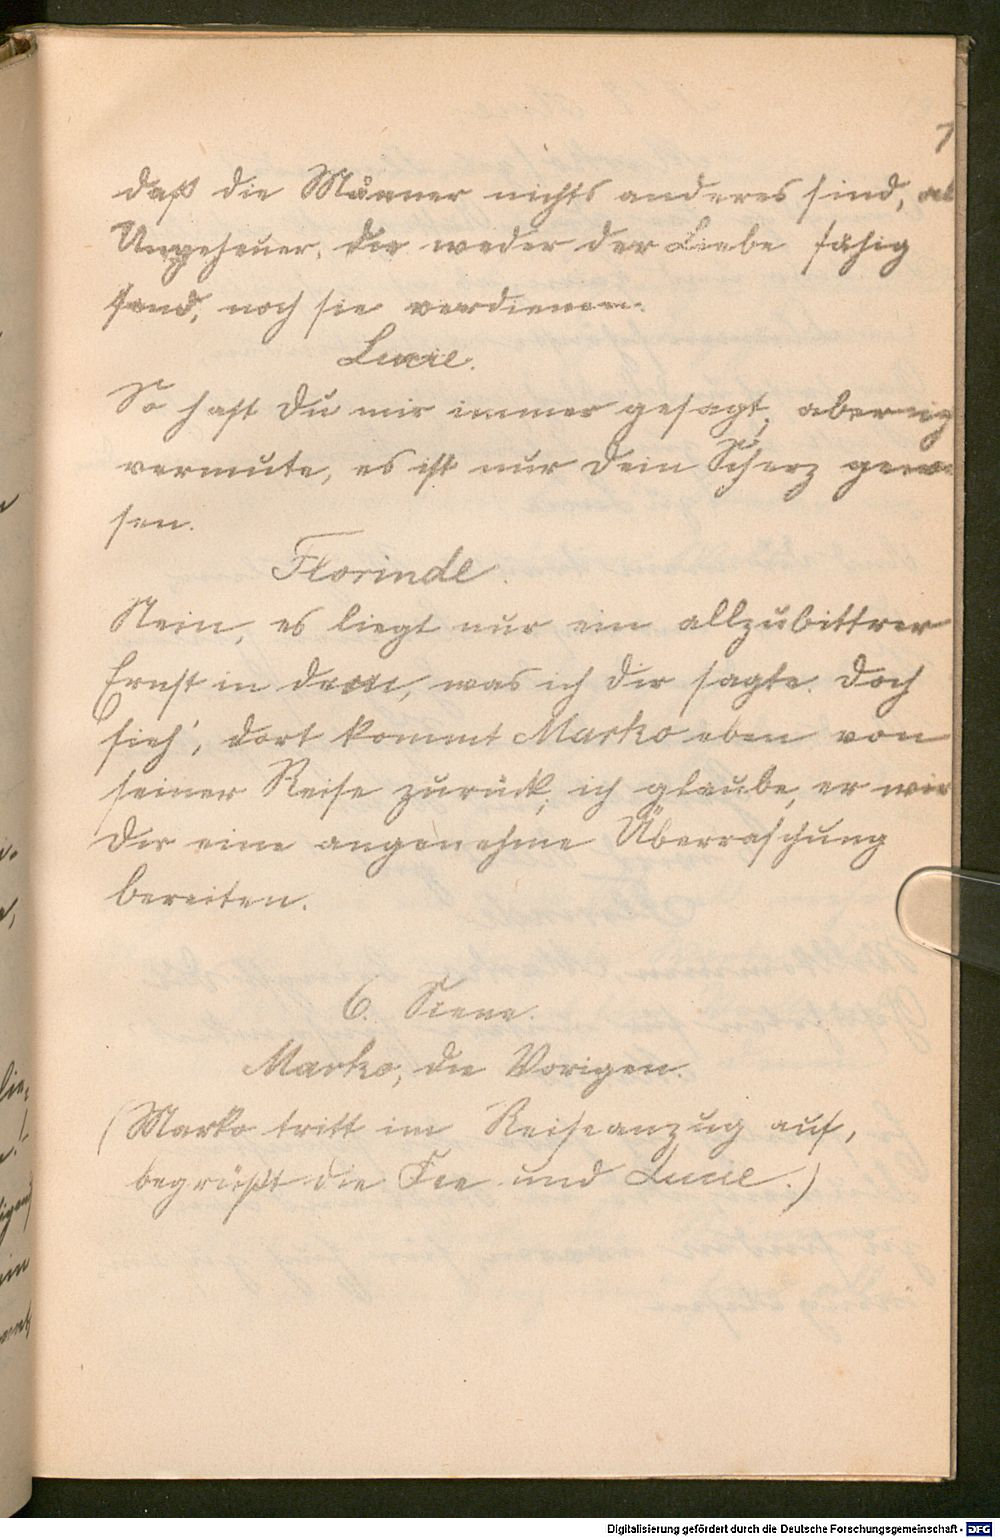 7
daß die Männer nichts anderes sind, als
Ungeheuer, die weder der Liebe fähig
sind, noch sie verdienen.
Lucie.
So hast Du mir immer gesagt, aber ich
vermute, es ist nur Dein Scherz gewe-
sen.
Florinde.
Nein, es liegt nur ein allzubittrer
Ernst in dem, was ich Dir sagte. Doch
sieh', dort kommt Marko eben von
seiner Reise zurück, ich glaube, er wird
Dir eine angenehme Überraschung
bereiten.
6. Scene.
Marko, die Vorigen.
(Marko tritt im Reiseanzug auf,
begrüßt die Fee und Lucie.)
Digitalisierung gefördert durch die Deutsche Forschungsgemeinschaft - DFG